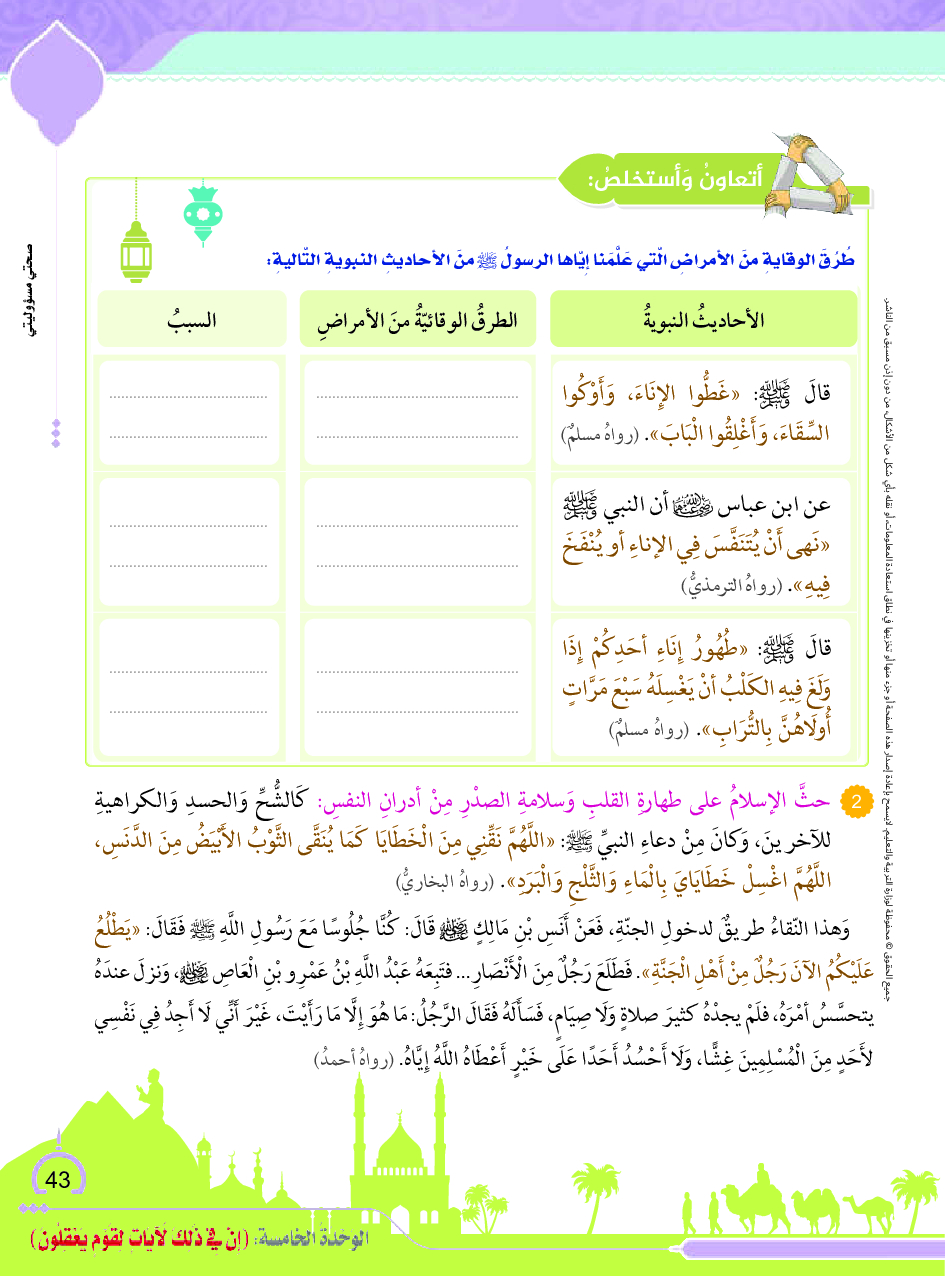 أتعاونُ وَأستخلصُ:
طُرُقَ الوقايةِ منَ الأمراضِ الّتي عَلَّمَنا إيّاها الرسولُ ﷺ منَ الأحاديثِ النبويةِ التّاليةِ:
الأحاديثُ النبويةُ
الطرقُ الوقائيّةُ منَ الأمراضِ
السببُ
قالَ ﷺ: «غَطُّوا الإِنَاءَ، وَأَوْكُوا
السِّقَاءَ، وَأَغْلِقُوا الْبَابَ». (رواهُ مسلمٌ)
عن ابن عباس رضي الله عنهما أن النبي ﷺ
«نَهى أَنْ يُتَنَفَّسَ فِي الإناءِ أو يُنْفَخَ
فِيهِ». (رواهُ الترمذيُّ)
قالَ ﷺ: «طُهُورُ إِنَاءِ أحَدِكُمْ إِذَا
وَلَغَ فِيهِ الكَلْبُ أنْ يَغْسِلَهُ سَبْعَ مَرَّاتٍ
أُولَاهُنَّ بِالتُّرَابِ». (رواهُ مسلمٌ)
2 حثَّ الإسلامُ على طهارةِ القلبِ وَسلامةِ الصدْرِ مِنْ أدرانِ النفسِ: كَالشُّحِّ وَالحسدِ وَالكراهيةِ
للآخرينَ، وَكانَ مِنْ دعاءِ النبيِّ ﷺ: «اللَّهُمَّ نَقِّنِي مِنَ الْخَطَايَا كَمَا يُنَقَّى الثَّوْبُ الأَبْيَضُ مِنَ الدَّنَسِ،
اللَّهُمَّ اغْسِلْ خَطَايَايَ بِالْمَاءِ وَالثَّلْجِ وَالْبَرَدِ». (رواهُ البخاريُّ)
وَهذا النّقاءُ طريقٌ لدخولِ الجنّةِ، فَعَنْ أَنَسِ بْنِ مَالِكٍ رضي الله عنه قَالَ: كُنَّا جُلُوسًا مَعَ رَسُولِ اللَّهِ ﷺ فَقَالَ: «يَطْلُعُ
عَلَيْكُمُ الآنَ رَجُلٌ مِنْ أَهْلِ الْجَنَّةِ». فَطَلَعَ رَجُلٌ مِنَ الْأَنْصَارِ... فَتَبِعَهُ عَبْدُ اللَّهِ بْنُ عَمْرِو بْنِ الْعَاصِ رضي الله عنه، وَنزلَ عندَهُ
يتحسَّسُ أمْرَهُ، فلَمْ يجدْهُ كثيرَ صلاةٍ وَلَا صِيَامٍ، فَسَأَلَهُ فَقَالَ الرَّجُلُ: مَا هُوَ إِلَّا مَا رَأَيْتَ، غَيْرَ أَنِّي لَا أَجِدُ فِي نَفْسِي
لأَحَدٍ مِنَ الْمُسْلِمِينَ غِشًّا، وَلَا أَحْسُدُ أَحَدًا عَلَى خَيْرٍ أَعْطَاهُ اللَّهُ إِيَّاهُ. (رواهُ أحمدُ)
صحتي مسؤوليتي
جميع الحقوق © محفوظة لوزارة التربية والتعليم. لايسمح بإعادة إصدار هذه الصفحة أو جزء منها أو تخزينها في نطاق استعادة المعلومات، أو نقله بأي شكل من الأشكال، من دون إذن مسبق من الناشر.
43
الوحدة الخامسة: (إن في ذلك لآيات لقوم يعقلون)